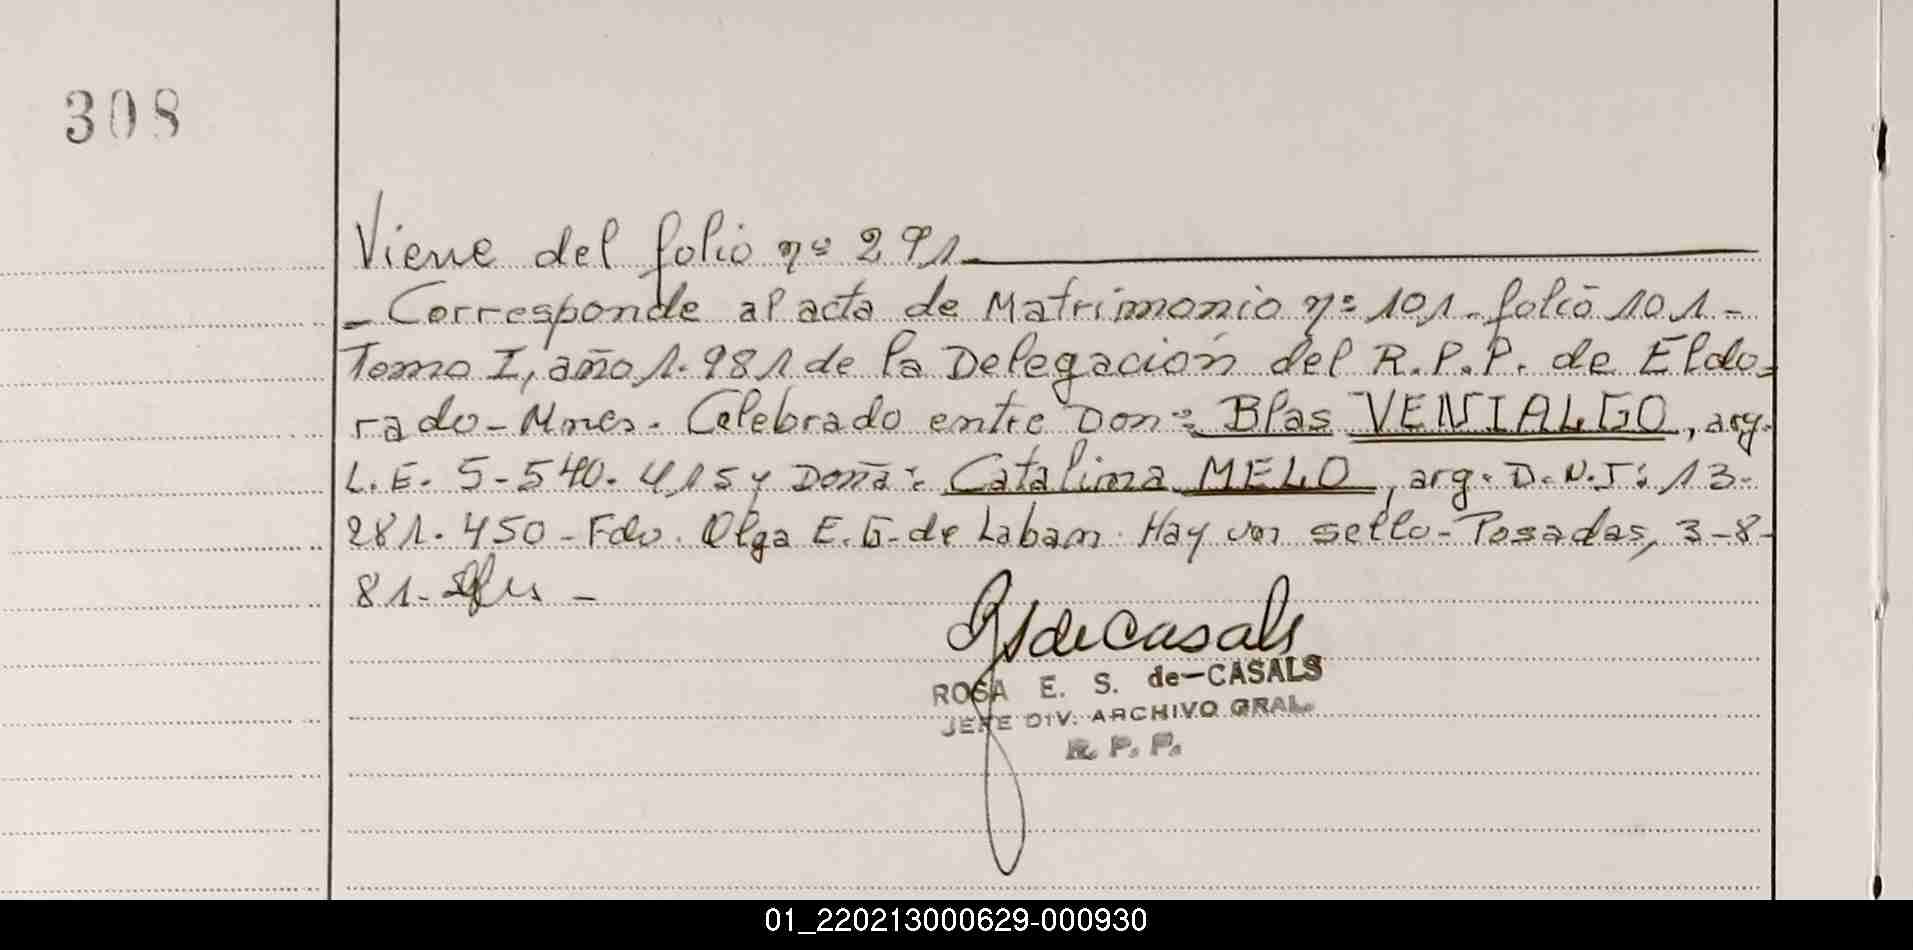 308
Viene del folio nº 291.
- Corresponde al acta de Matrimonio nº 101. folio 101 -
Tomo I, año 1.981 de la Delegación del R.P.P. de Eldo-
rado - Mnes. Celebrado entre Don: Blas VENIALGO, arg.
L.E. 5-540.415 y Doña: Catalina MELO, arg. D.N.I: 13-
281.450 - Fdo. Olga E. G. de Laban. Hay un sello - Posadas, 3-8-
81. -
ROSA E. S. de-CASALS
JEFE DIV. ARCHIVO GRAL.
R. P. P.
01_220213000629-000930